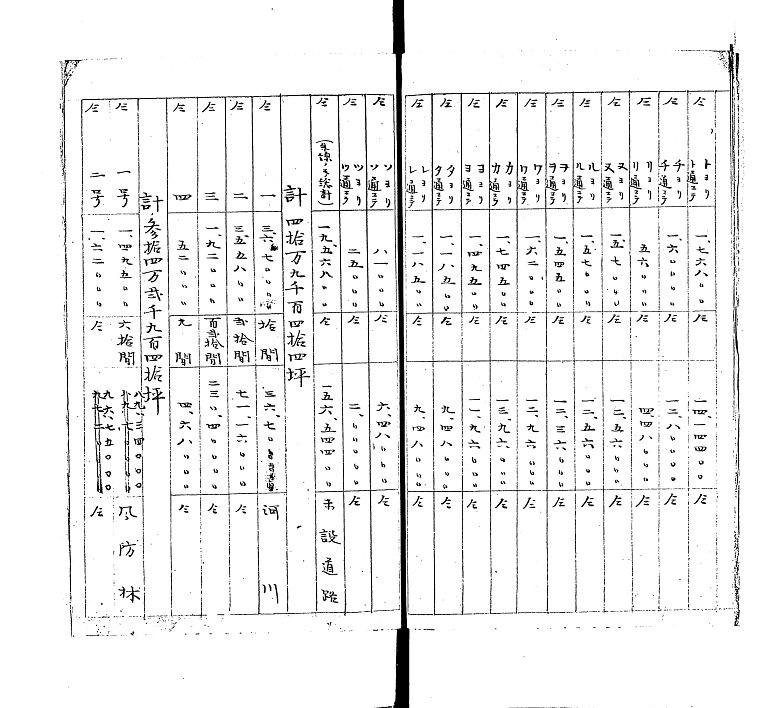 仝 トヨリ ト通ニテ 一、七六八〇〇 仝 二四、一四四〇〇 仝
仝 チヨリ チ通ニテ 一、六〇〇〇〇 一二、八〇〇〇〇 仝
仝 リヨリ リ通ニテ 五六〇〇〇 四、四八〇〇〇 仝
仝 ヌヨリ ヌ通ニテ 一、五七〇〇〇 一二、五六〇〇〇 仝
仝 ルヨリ ル通ニテ 一、五七〇〇〇 一二、五六〇〇〇 仝
仝 ヲヨリ ヲ通ニテ 一、五四五〇〇 一二、三六〇〇〇 仝
仝 ワヨリ ワ通ニテ 一、六二〇〇〇 一二、九六〇〇〇 仝
仝 カヨリ カ通ニテ 一、七四五〇〇 一三、九六〇〇〇 仝
仝 ヨヨリ ヨ通ニテ 一、四九五〇〇 一一、九六〇〇〇 仝
仝 タヨリ タ通ニテ 一、一八五〇〇 九、四八〇〇〇 仝
仝 レヨリ レ通ニテ 一、一八五〇〇 九、四八〇〇〇 仝
仝 ソヨリ ソ通ニテ 八一〇〇〇 仝 六、四八〇〇〇 仝
仝 ツヨリ ツ通ニテ 二五〇〇〇 仝 二、〇〇〇〇〇 仝
仝 一九、五六八〇〇 仝 一五六、五四四〇〇 未設道路
計 四拾万九千百四拾四坪
仝 一 三、六七〇〇〇 拾間 三六、七〇〇 河川
仝 二 三、五五八〇〇 弐拾間 七一、一六〇〇〇 仝
仝 三 一、九二〇〇〇 百弐拾間 二三〇、四〇〇〇〇 仝
仝 四 五二〇〇〇 九間 四、六八〇〇〇 仝
計 参拾四万弐千九百四拾坪
仝 一号 一、四九五〇〇 六拾間 八九、三四〇〇〇 風防林
仝 二号 一、六二〇〇〇 仝 九六、七五〇〇〇 仝